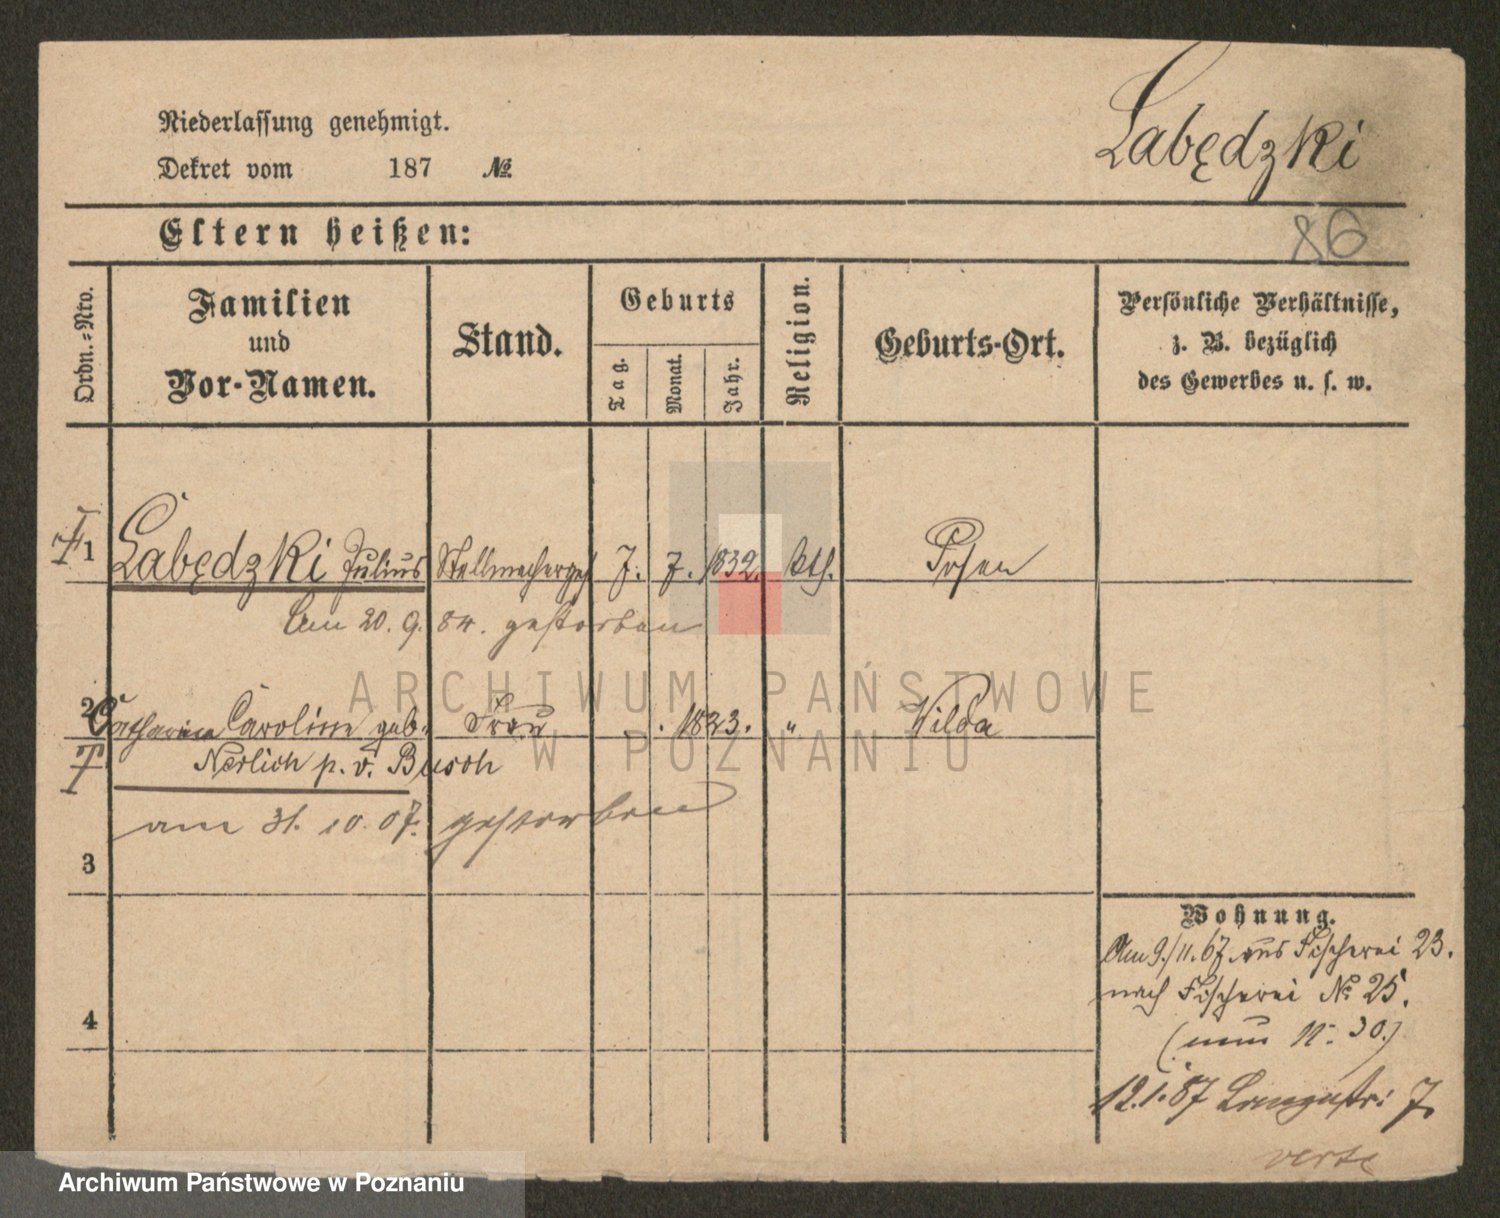 Niederlassung genehmigt.
Łabędzki
Dekret vom 187 №.
Eltern heißen:
86
Ordn.-Nro.
Familien
und
Vor-Namen.
Stand.
Geburts
Tag.
Monat.
Jahr.
Religion.
Geburts-Ort.
Persönliche Verhältnisse,
z. B. bezüglich
des Gewerbes u. s. w.
† 1 Łabędzki Julius Stellmacherges 7. 7. 1832. kth. Posen
Am 20. 9. 84. gestorben
ARCHIWUM PAŃSTWOWE
W POZNANIU
2 Catharina Caroline geb. Frau 1833. " Wilda
† Nerlich p. v. Busch
am 31. 10. 07. gestorben
3
Wohnung.
Am 9./11. 67 aus Fischerei 23.
nach Fischerei № 25.
4
(nun № 30.)
12.1.87 Langestr: 7.
verte
Archiwum Państwowe w Poznaniu